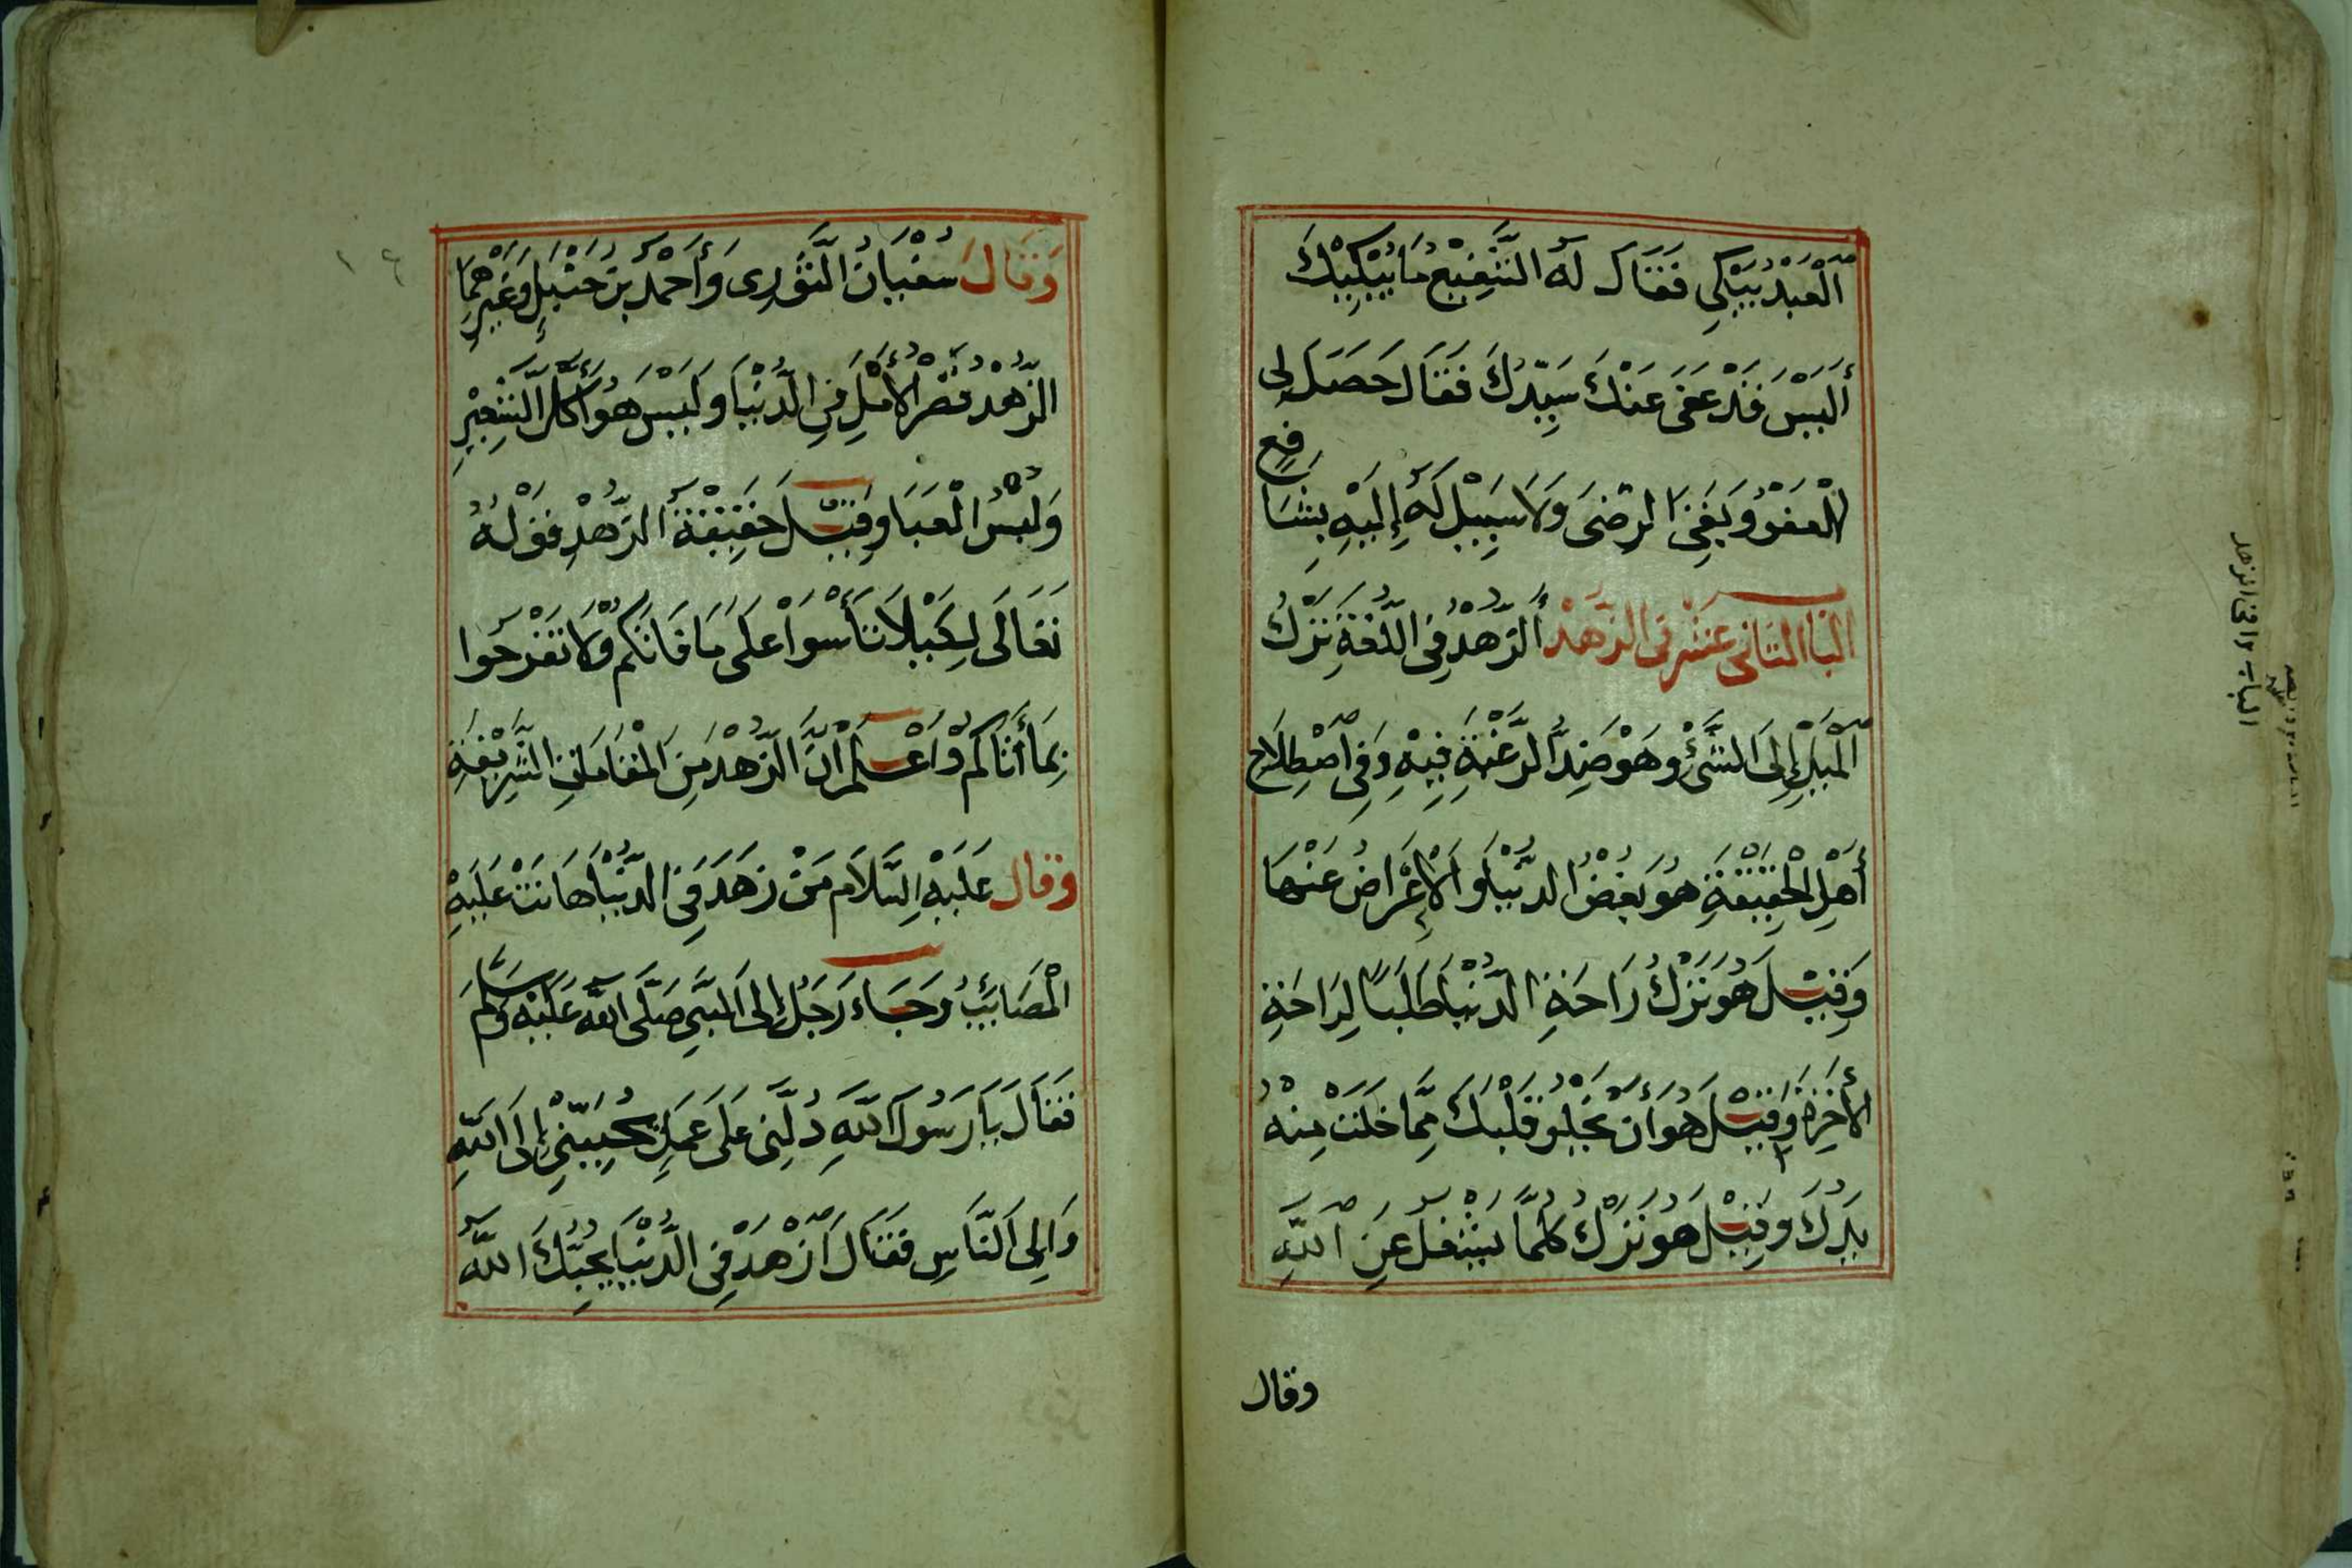 اَلْعَبْدُ يَبْكِي فَقَالَ لَهُ الشَّفِيعُ مَا يُبْكِيْكَ
أَلَيْسَ قَدْ عَفَى عَنْكَ سَيِّدُكَ فَقَالَ حَصَلَ لِي
الْعَفْوُ وَبَقِيَ الرِّضَى وَلَا سَبِيْلَ لَهُ إِلَيْهِ بِشَافِعٍ
الباب الثاني عشر في الزهد أَلزُّهْدُ فِي اللُّغَةِ تَرْكُ
اَلْمَيْلِ إِلَى الشَّيْءِ وَهُوَ ضِدُّ الرَّغْبَةِ فِيْهِ وَفِي اصْطِلَاحِ
أَهْلِ الْحَقِيْقَةِ هُوَ بُغْضُ الدُّنْيَا وَالْإِعْرَاضُ عَنْهَا
وَقِيْلَ هُوَ تَرْكُ رَاحَةِ الدُّنْيَا طَلَبًا لِرَاحَةِ
الأخِرَةِ وَقِيْلَ هُوَ أَنْ يَخْلُوَ قَلْبُكَ مِمَّا خَلَتْ مِنْهُ
يَدُكَ وَقِيْلَ هُوَ تَرْكُ كُلِّمَا يَشْغُلُ عَنِ اللهِ
وقال
الباب ١٢ في الزهد
وَقَالَ سُفْيَانُ الثَّوْرِى وَأَحْمَدُ بْنُ حَنْبَلٍ وَغَيْرِهِمَا
الزُّهْدُ قَصْرُ الْأَمَلِ فِي الدُّنْيَا وَلَيْسَ هُوَ أَكْلُ الشَّعِيْرِ
وَلُبْسُ الْعَبَا وَقِيْلَ حَقِيْقَةُ الزُّهْدِ قَوْلُهُ
تَعَالَى لِكَيْلَا تَأْسَوْا عَلَى مَا فَاتَكُمْ وَلَا تَفْرَحُوا
بِمَا أَتَاكُمْ وَاعْلَمْ أَنَّ الزُّهْدَ مِنَ الْمَقَامَاتِ الشَّرِيْفَةِ
وقال عَلَيْهِ السَّلَام مَنْ زَهَدَ فِي الدُّنْيَا هَانَتْ عَلَيْهِ
الْمَصَايِبُ وَجَاءَ رَجُلٌ إِلَى النَّبِيِّ صَلَّى اللهُ عَلَيْهِ وَسَلَّمَ
فَقَالَ يَا رَسُولَ اللهِ دُلَّنِي عَلَى عَمَلٍ يُحَبِّبُنِي إِلَى اللهِ
وَإِلَى النَّاسِ فَقَالَ اَزْهَدْ فِي الدُّنْيَا يُحِبُّكَ اللهُ